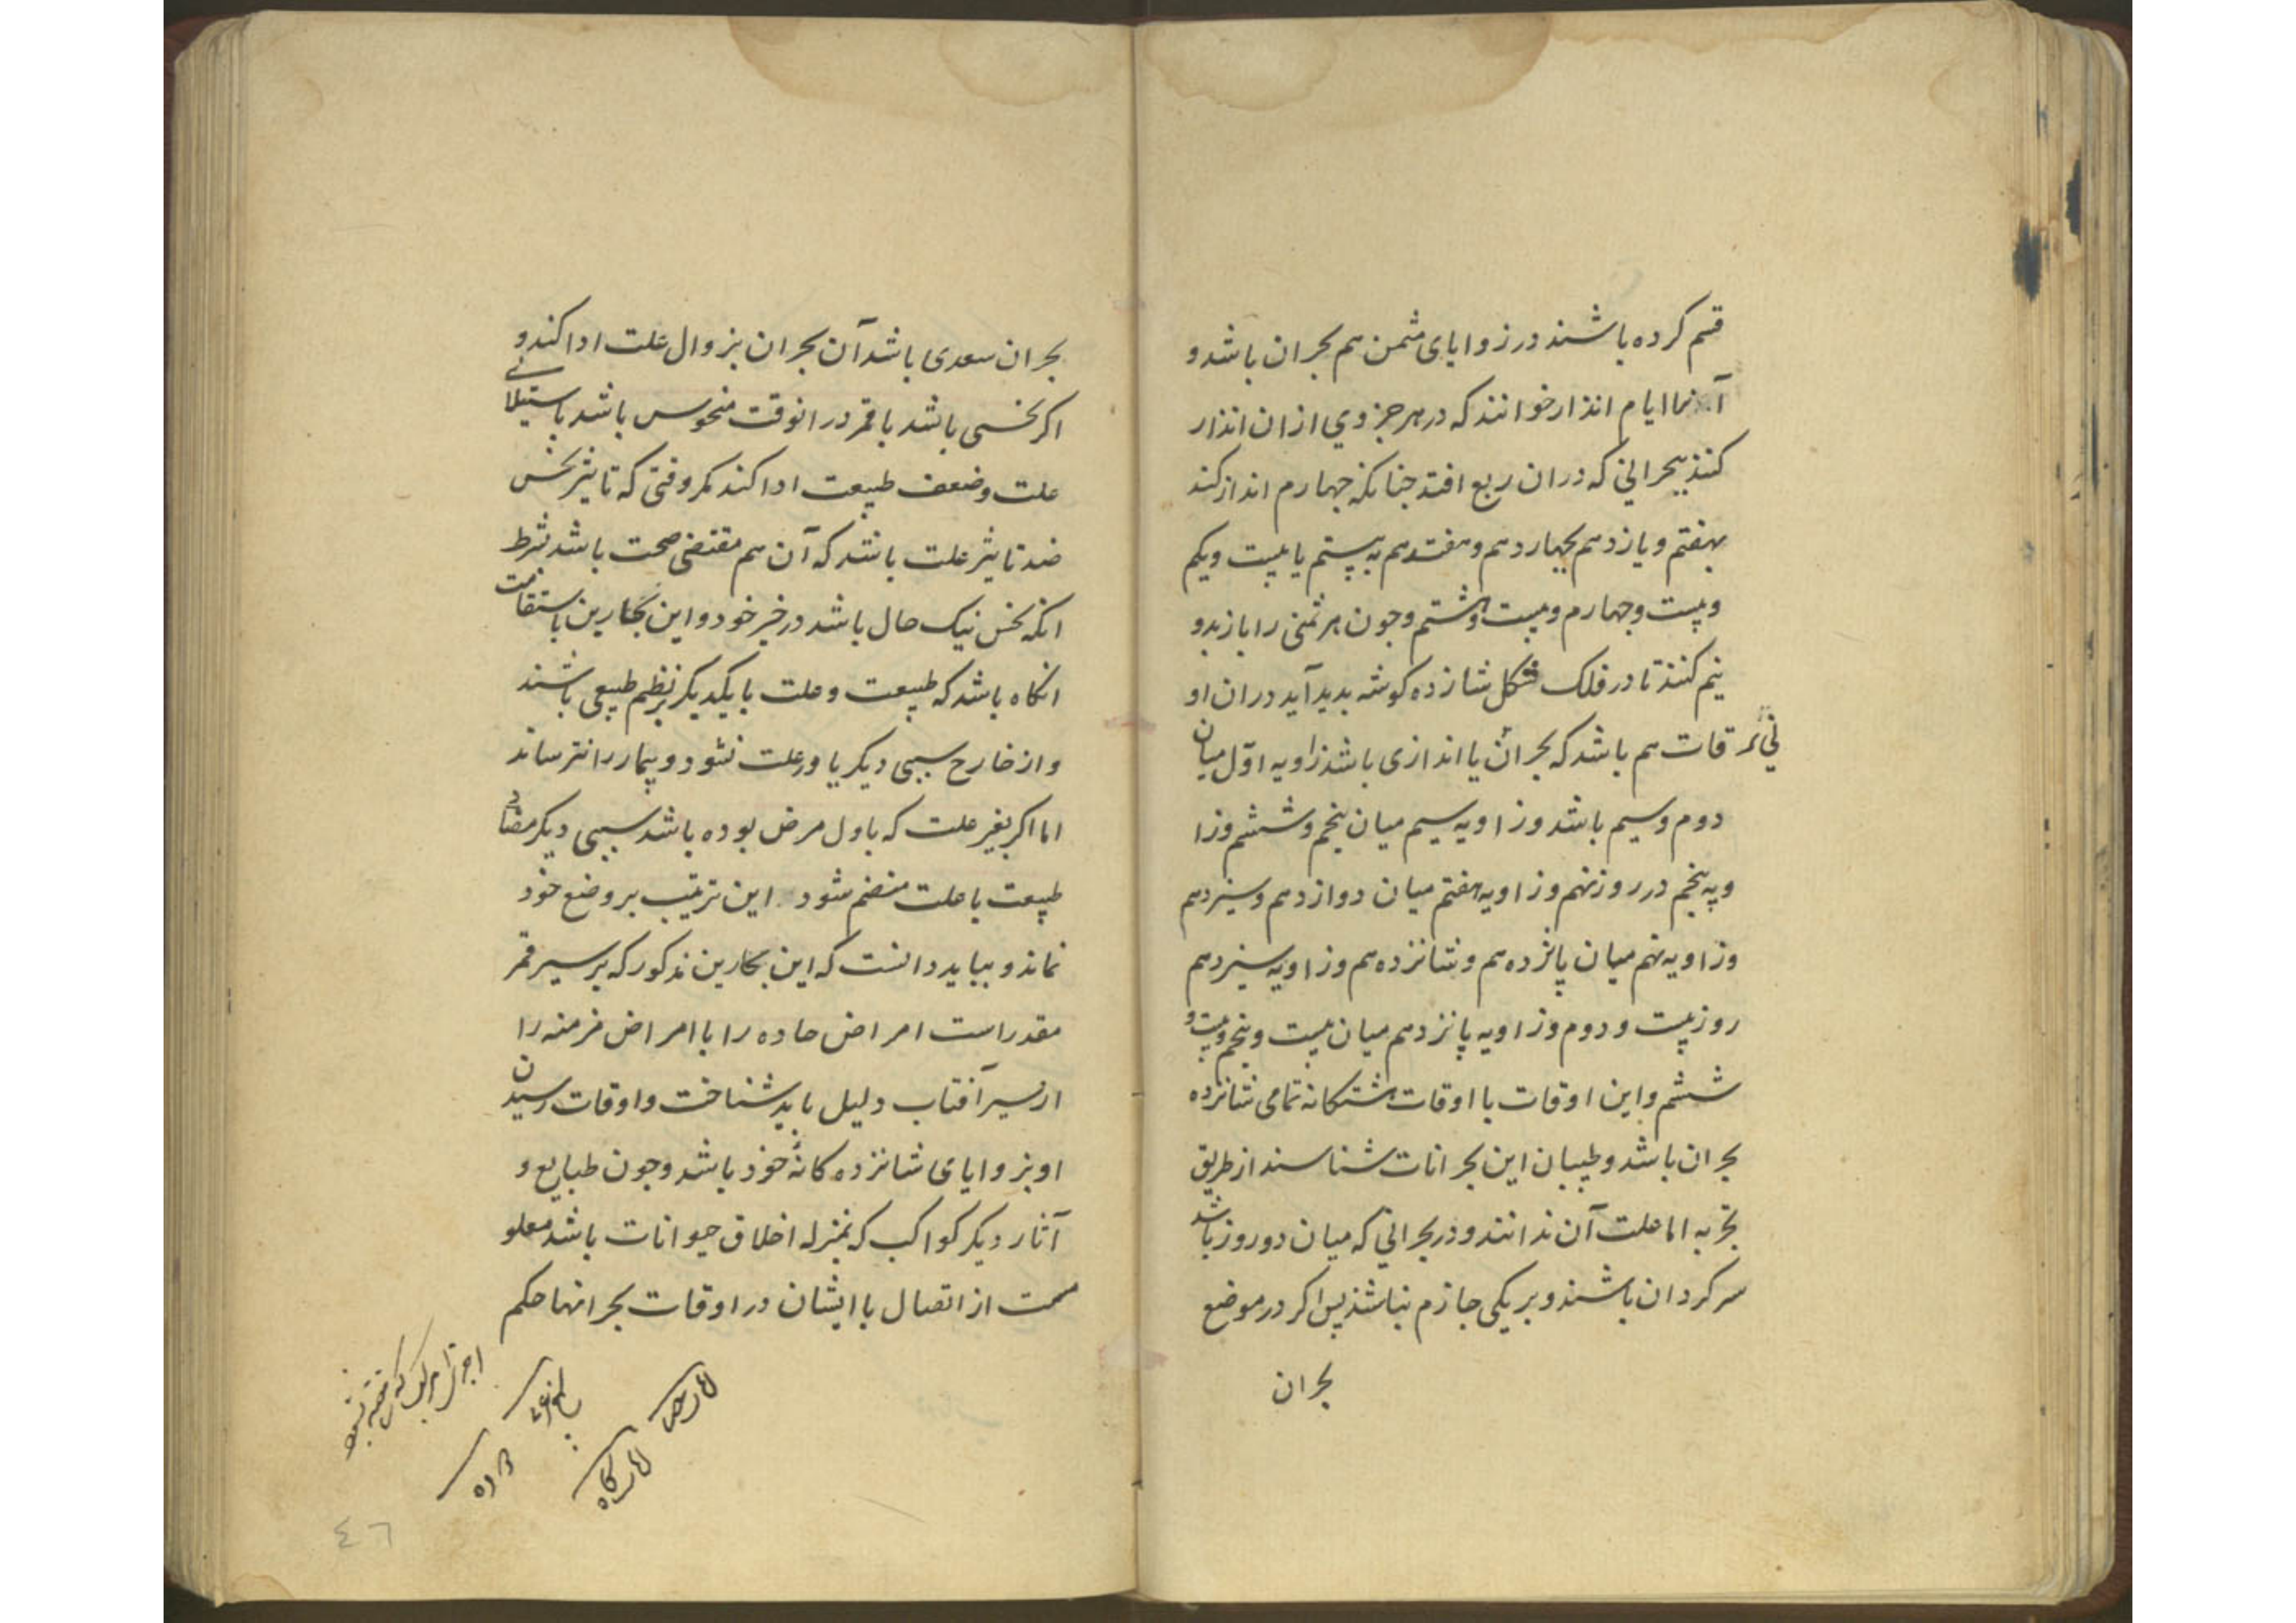 قسم کرده باشند در زوایای مثمن هم بحران باشد و
آنها ایام انذار خوانند که در هر جزوی از ان انذار
کنند ببحرانی که در ان ربع افتد جنانکه جهارم انذار کند
بهفتم و یازدهم بجهاردهم و هفتدهم به بیستم یا بیست ویکم
وبیست وجهارم وبیست وهشتم وجون هر ثمنی را باز بدو
نیم کنند تا در فلک شکل شانزده کوشه بدید آید دران او
قات هم باشد که بحران یا اندازی باشد زاویه اوّل میان
دوم وسیم باشد وزاویه سیم میان پنجم وششم وزا
ویه پنجم در روز نهم وزاویه هفتم میان دوازدهم وسیزدهم
وزاویه نهم میان پانزده هم وشانزده هم وزاویه سیزدهم
روز بیست ودوم وزاویه پانزدهم میان بیست وپنجم وبیست و
ششم واین اوقات با اوقات هشتکانه تمامی شانزده
بحران باشد وطبیبان این بحرانات شناسند از طریق
تجربه اما علت آن ندانند ودر بحرانی که میان دو روز باشد
سرکردان باشند وبر یکی جازم نباشند پس اکر در موضع
بحران
بحران سعدی باشد آن بحران بزوال علت ادا کند و
اکر نحسی باشد یا قمر در انوقت منحوس باشد باستیلای
علت وضعف طبیعت ادا کند مکر وقتی که تاثیر نحس
ضد تاثیر علت باشد که آن هم مقتضی صحت باشد بشرط
انکه نحس نیک حال باشد در خیر خود واین بحارین باستقامت
انکاه باشد که طبیعت وعلت با یکدیکر بر نظم طبیعی باشند
واز خارج سببی دیکر یاور علت نشود وبیمار را نترساند
اما اکر بغیر علت که باول مرض بوده باشد سببی دیکر مضاد
طبیعت با علت منضم شود این ترتیب بر وضع خود
نماند و بباید دانست که این بحارین مذکور که بر سیر قمر
مقدر است امراض حاده را با امراض مزمنه را
از سیر آفتاب دلیل باید شناخت واوقات رسیدن
او بزوایای شانزده کانهٔ خود باشد وجون طبایع و
آثار دیکر کواکب که بمنزله اخلاق حیوانات باشد معلو
مست از اتصال با ایشان در اوقات بحرانها حکم
٤٦